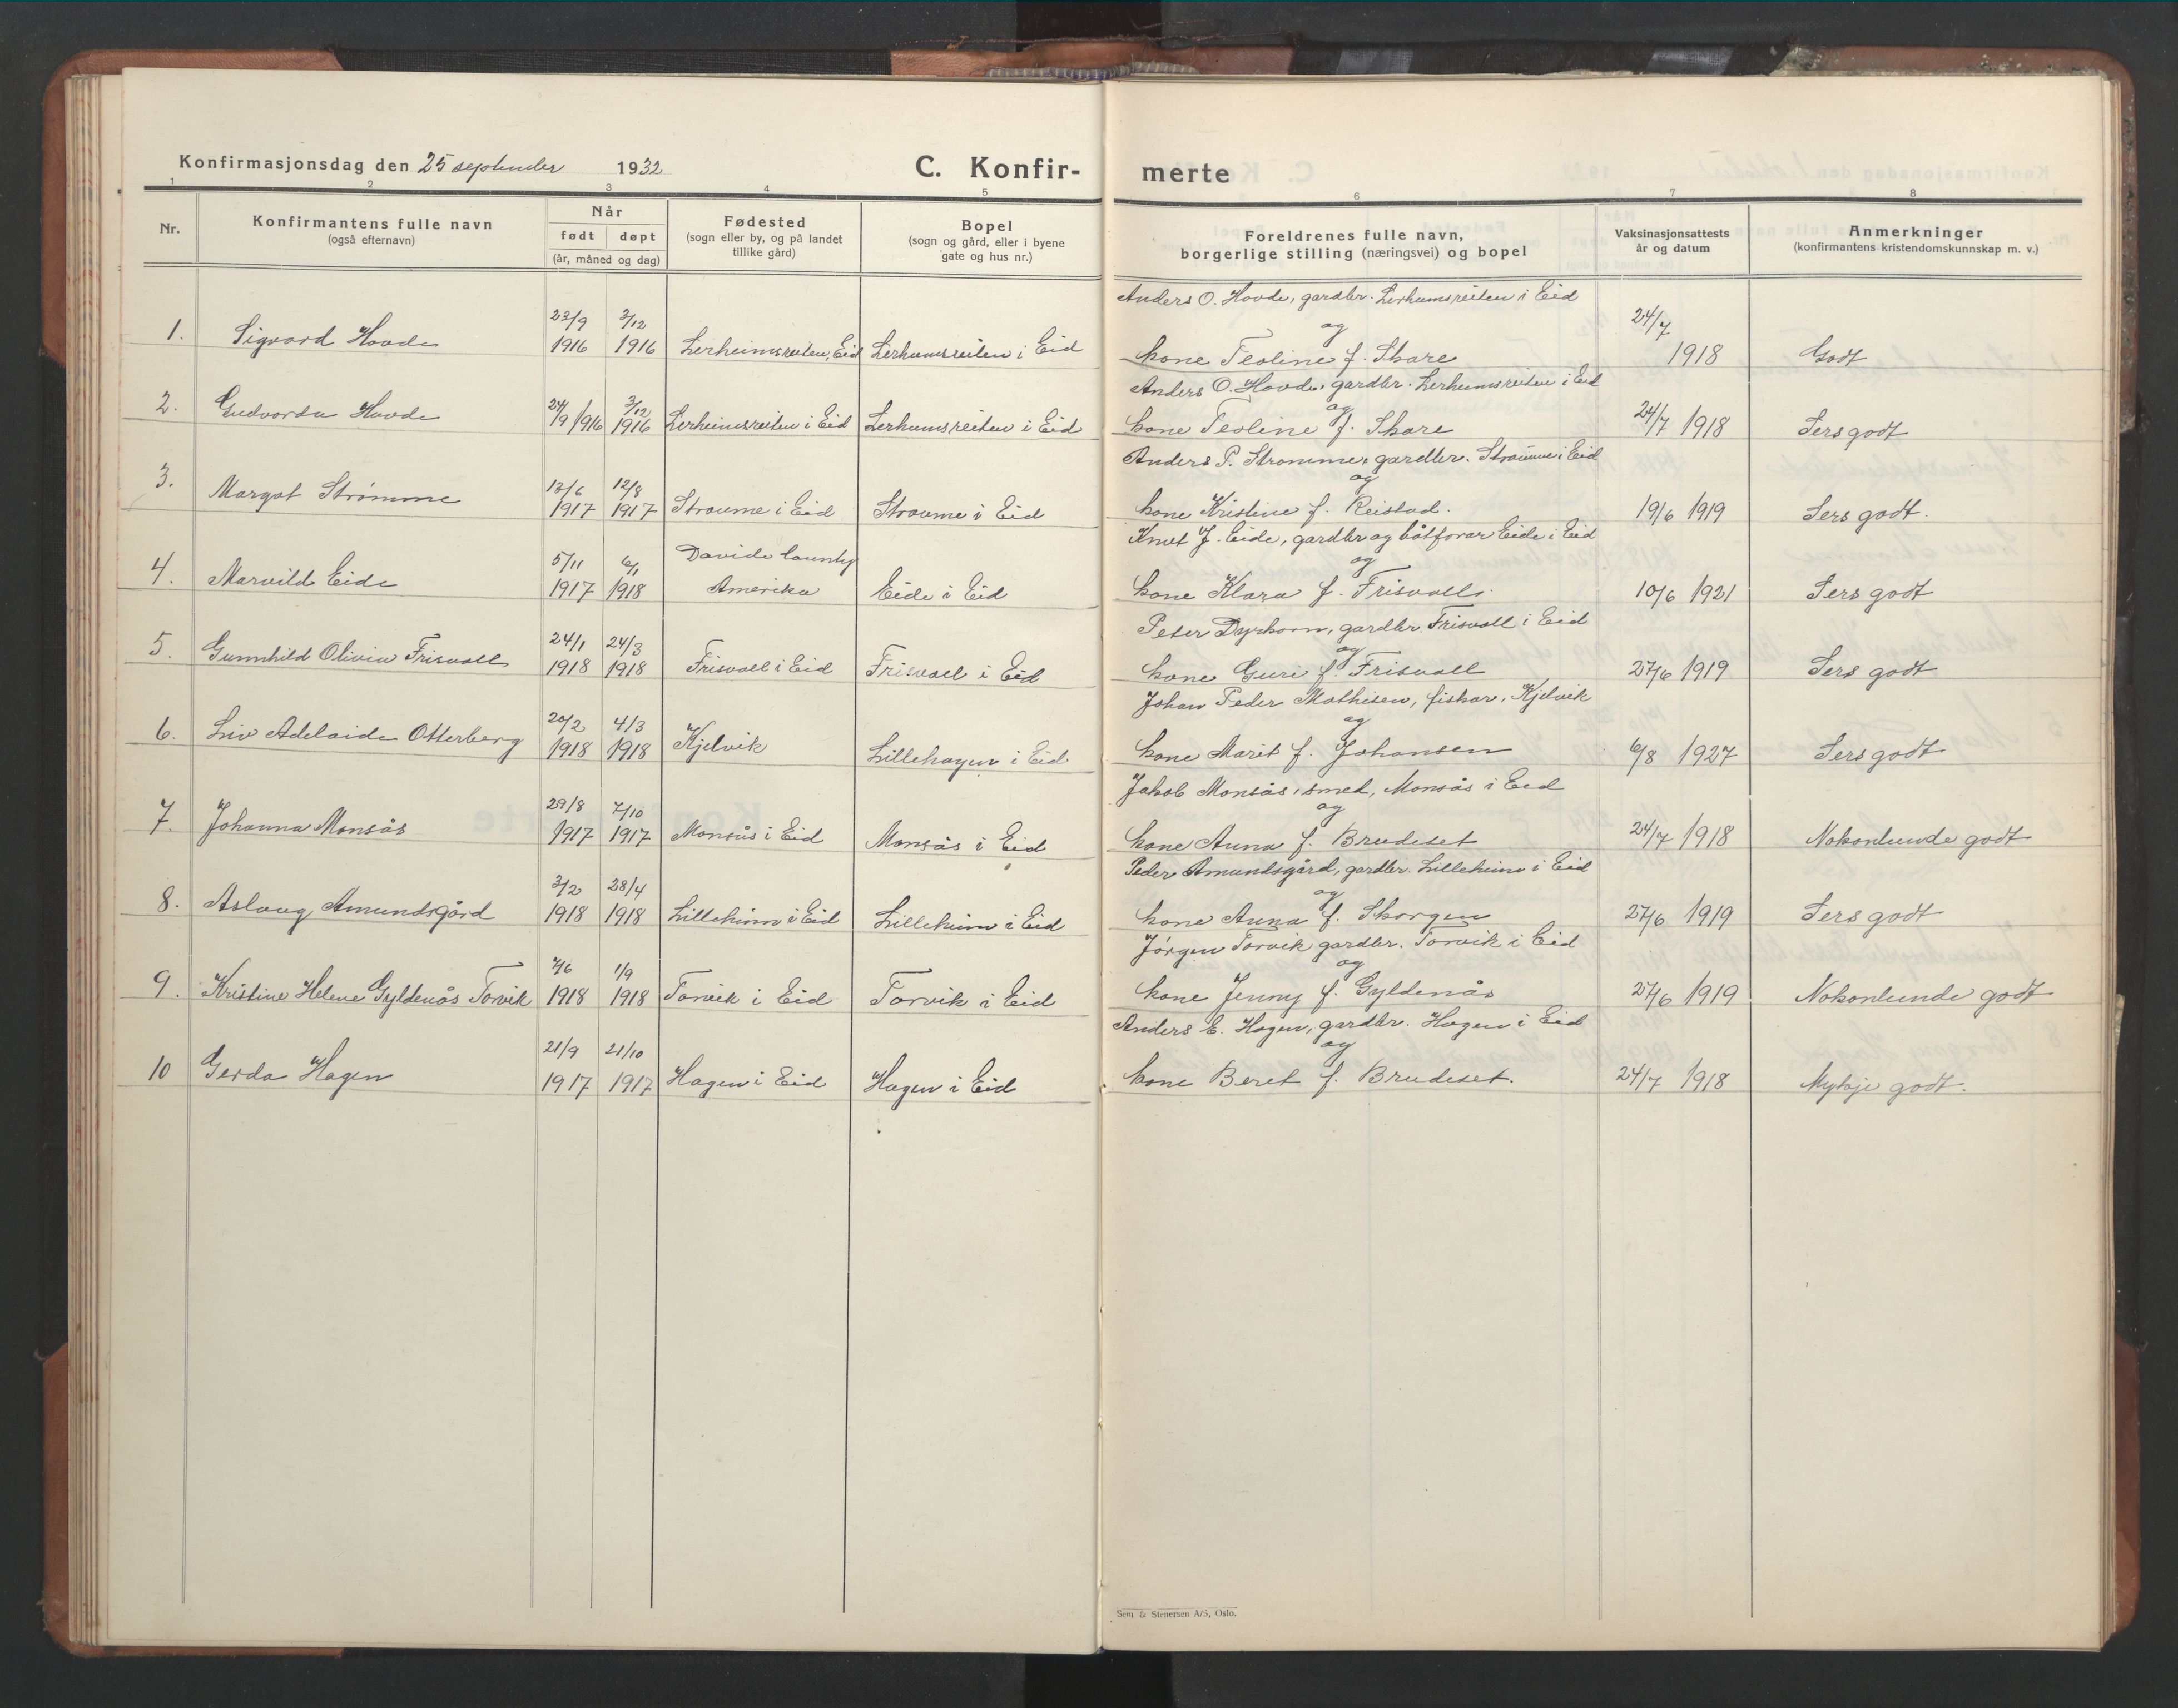 Konfirmasjonsdag den 25 september 1932 C. Konfir-
1 2 3 4 5
Nr.
Konfirmantens fulle navn
(også efternavn)
Når
født døpt
(år, måned og dag)
Fødested
(sogn eller by, og på landet
tillike gård)
Bopel
(sogn og gård, eller i byene
gate og hus nr.)
1. Sigvard Hovde 23/9 1916 3/12 1916 Lerheimsreiten, Eid Lerheimsreiten i Eid
2. Gudvorda Hovde 24/9 1916 3/12 1916 Lerheimsreiten i Eid Lerheimsreiten i Eid
3. Margot Strömme 13/6 1917 12/8 1917 Straume i Eid Straume i Eid
4. Marvild Eide 5/11 1917 6/1 1918 Davids County Amerika Eide i Eid
5. Gunnhild Olivia Frisvoll 24/1 1918 24/3 1918 Frisvoll i Eid Frisvoll i Eid
6. Liv Adelaide Otterberg 20/2 1918 4/3 1918 Kjelvik Lillehagen i Eid
7. Johanna Monsås 29/8 1917 7/10 1917 Monsås i Eid Monsås i Eid
8. Aslaug Amundsgård 3/2 1918 28/4 1918 Lilleheim i Eid Lilleheim i Eid
9. Kristine Helene Gyldenås Torvik /6 1918 1/9 1918 Torvik i Eid Torvik i Eid
10 Gerda Hagen 21/9 1917 21/10 1917 Hagen i Eid Hagen i Eid
merte
6 7 8
Foreldrenes fulle navn,
borgerlige stilling (næringsvei) og bopel
Vaksinasjonsattests
år og datum
Anmerkninger
(konfirmantens kristendomskunnskap m. v.)
Anders O. Hovde, gardbr. Lerheimsreiten i Eid
og
kone Teoline f. Skare 24/7 1918 Godt
Anders O. Hovde, gardbr. Lerheimsreiten i Eid
og
kone Teoline f. Skare 24/7 1918 Sers godt
Anders P. Stromme, gardbr. Straume i Eid
og
kone Kristine f. Reistad. 19/6 1919 Sers godt.
Knut J. Eide, gardbr og båtforar Eide i Eid
og
kone Klara f. Frisvoll. 10/6 1921 Sers godt
Peter Dyrkorn, gardbr. Frisvoll i Eid
og
kone Guri f. Frisvoll 27/6 1919 Sers godt
Johan Peder Mathisen, fiskar, Kjelvik
og
kone Marit f. Johansen 6/8 1927 Sers godt
Jakob Monsås, smed, Monsås i Eid
og
kone Anna f. Brudeset 24/7 1918 Nokonlunde godt
Peder Amundsgård, gardbr. Lilleheim i Eid
og
kone Anna f. Skorgen 27/6 1919 Sers godt
Jörgen Torvik gardbr. Torvik i Eid
og
kone Jenny f. Gyldenås 27/6 1919 Nokonlunde godt
Anders E. Hagen, gardbr. Hagen i Eid
og
kone Beret f. Brudeset. 24/7 1918 Mykje godt.
Sem & Stenersen A/S, Oslo.